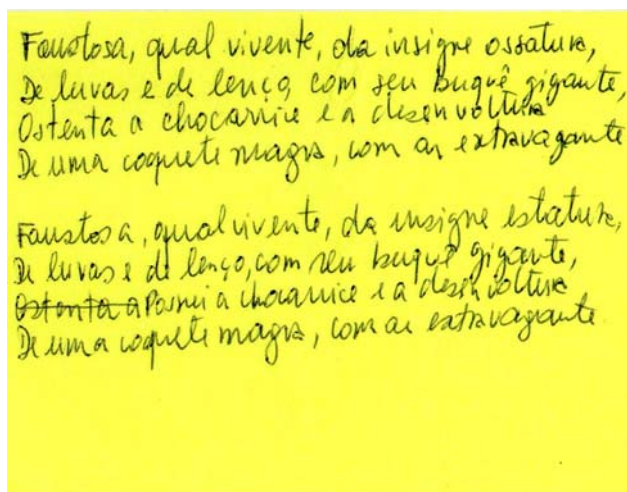 Faustosa, qual vivente, da insigne ossatura,
De luvas e de lenço, com seu buquê gigante,
Ostenta a chocarrice e a desenvoltura
De uma coquete magra, com ar extravagante
Faustosa, qual vivente, da insigne estatura,
De luvas e de lenço, com seu buquê gigante,
Ostenta a Possui a chocarrice e a desenvoltura
De uma coquete magra, com ar extravagante